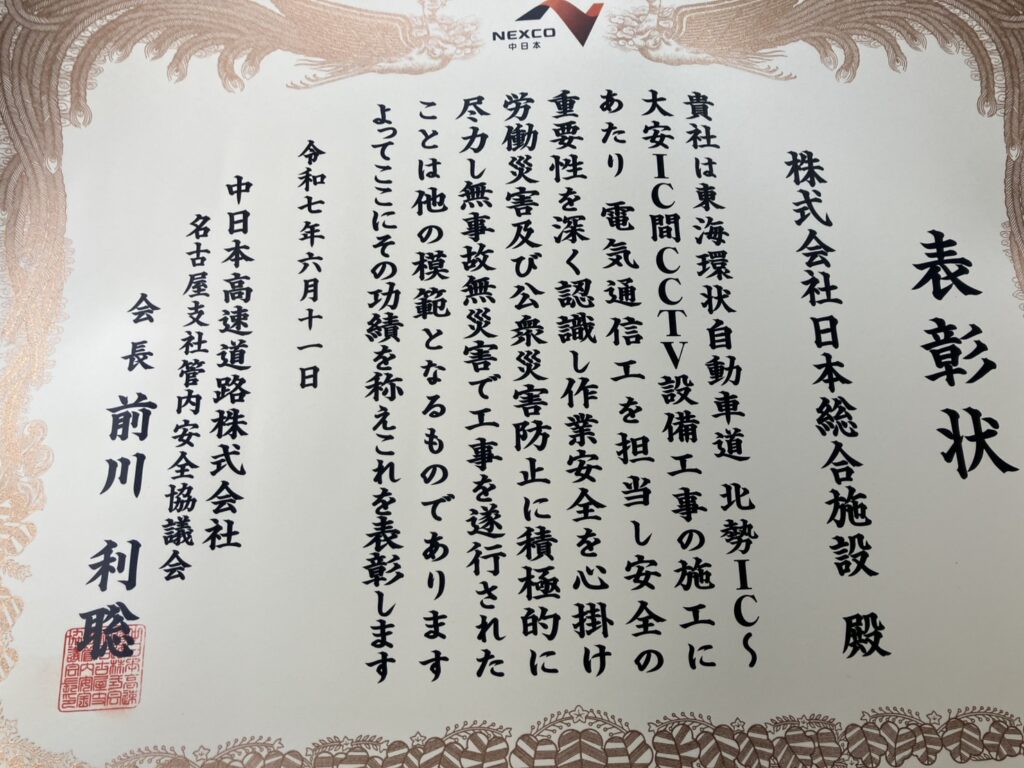 NEXCO
中日本
表彰状
株式会社日本総合施設 殿
貴社は東海環状自動車道 北勢IC～
大安IC間CCTV設備工事の施工に
あたり 電気通信工を担当し安全の
重要性を深く認識し作業安全を心掛け
労働災害及び公衆災害防止に積極的に
尽力し無事故無災害で工事を遂行された
ことは他の模範となるものであります
よってここにその功績を称えこれを表彰します
令和七年六月十一日
中日本高速道路株式会社
名古屋支社管内安全協議会
会長 前川 利聡